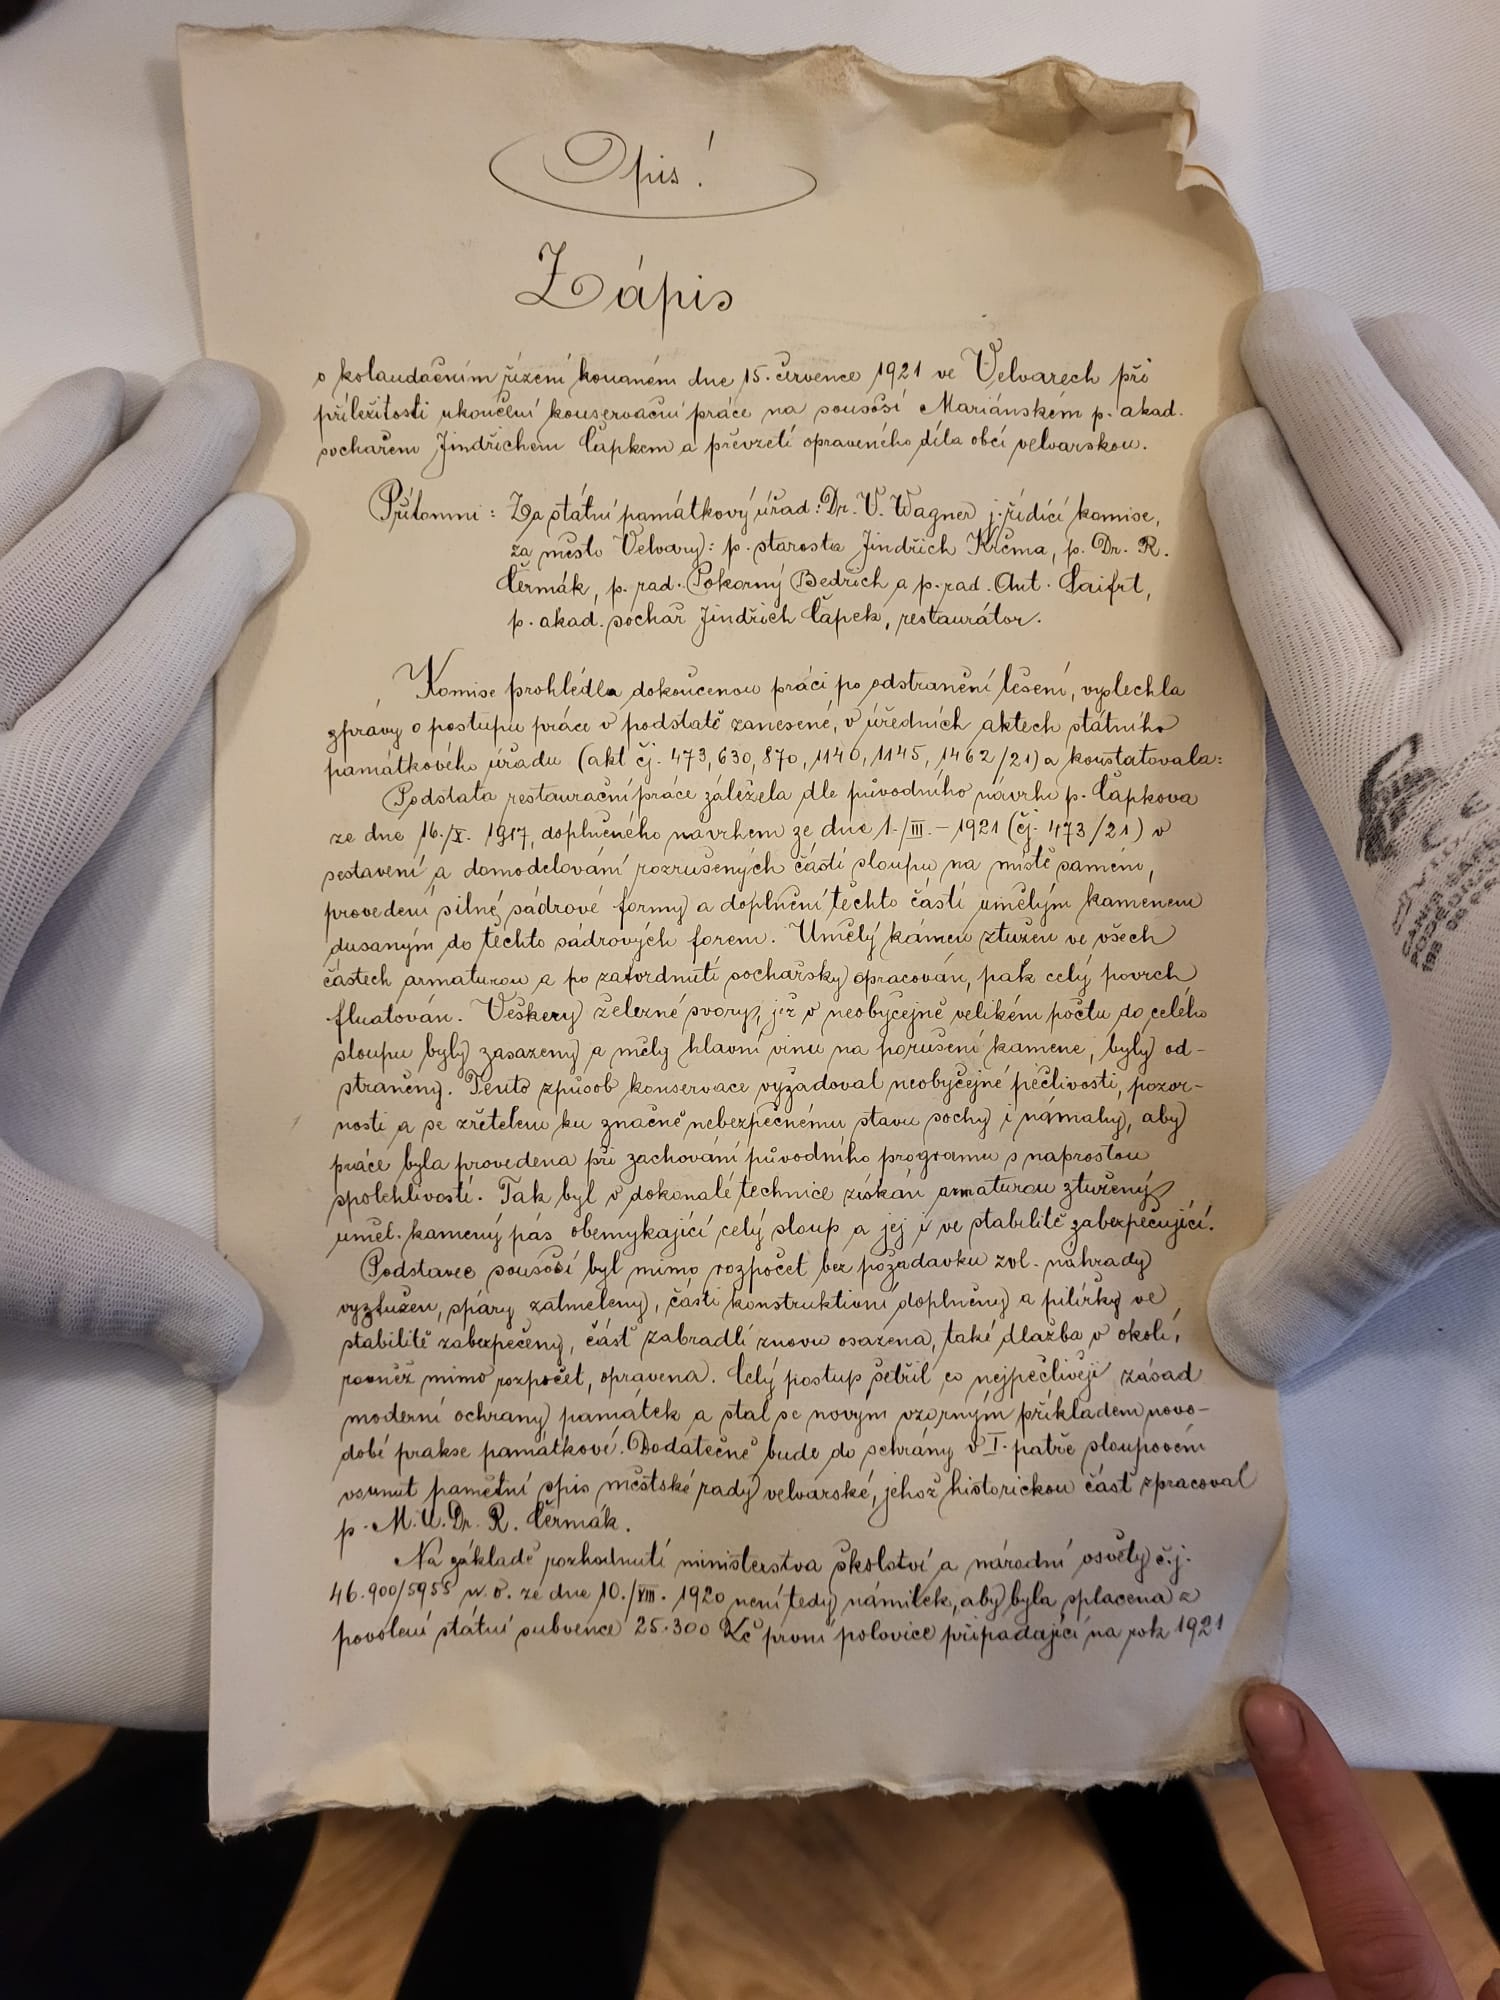 Opis!
Zápis
o kolaudačním řízení konaném dne 15. července 1921 ve Velvarech při
příležitosti ukončení konservační práce na sousoší Mariánském p. akad.
sochařem Jindřichem Čapkem a převzetí opraveného díla obcí velvarskou.
Přítomni: Za státní památkový úřad: Dr. V. Wagner j. řídící komise,
za město Velvary: p. starosta Jindřich Krčma, p. Dr. R.
Čermák, p. rad. Pokorný Bedřich a p. rad. Ant. Šaifrt,
p. akad. sochař Jindřich Čapek, restaurátor.
Komise prohlédla dokončenou práci po odstranění lešení, vyslechla
zprávy o postupu práce v podstatě zanesené, v úředních aktech státního
památkového úřadu (akt čj. 473, 630, 870, 1140, 1145, 1462/21) a konstatovala:
Podstata restaurační práce záležela dle původního návrhu p. Čapkova
ze dne 16./X. 1917, doplněného návrhem ze dne 1./III. – 1921 (čj. 473/21) v
sestavení a domodelování rozrušených částí sloupu na místě samém,
provedení silné sádrové formy a doplnění těchto částí umělým kamenem
dusaným do těchto sádrových forem. Umělý kámen ztužen ve všech
částech armaturou a po zatvrdnutí sochařsky opracován, pak celý povrch
fluatován. Veškery železné svory, jež v neobyčejně velikém počtu do celého
sloupu byly zasazeny a měly hlavní vinu na porušení kamene, byly od-
straněny. Tento způsob konservace vyžadoval neobyčejné pečlivosti, pozor-
nosti a se zřetelem ku značně nebezpečnému stavu sochy i námahy, aby
práce byla provedena při zachování původního programu s naprostou
spolehlivostí. Tak byl v dokonalé technice získán armaturou ztužený
uměl. kamený pás obemykající celý sloup a jej i ve stabilitě zabezpečující.
Podstavec sousoší byl mimo rozpočet bez požadavku zvl. náhrady
vyztužen, spáry zatmeleny, části konstruktivní doplněny a pilířky ve
stabilitě zabezpečeny, část zabradlí znovu osazena, také dlažba v okolí,
rovněž mimo rozpočet, opravena. Celý postup šetřil co nejpečlivěji zásad
moderní ochrany památek a stal se novým vzorným příkladem novo-
dobé prakse památkové. Dodatečně bude do schrány v I. patře sloupovém
vsunut pamětní spis městské rady velvarské, jehož historickou část zpracoval
p. M. U. Dr. R. Čermák.
Na základě rozhodnutí ministerstva školství a národní osvěty č.j.
46.900/5955 n. o. ze dne 10./VIII. 1920 není tedy námitek, aby byla splacena z
povolení státní subvence 25.300 Kč první polovice připadající na rok 1921